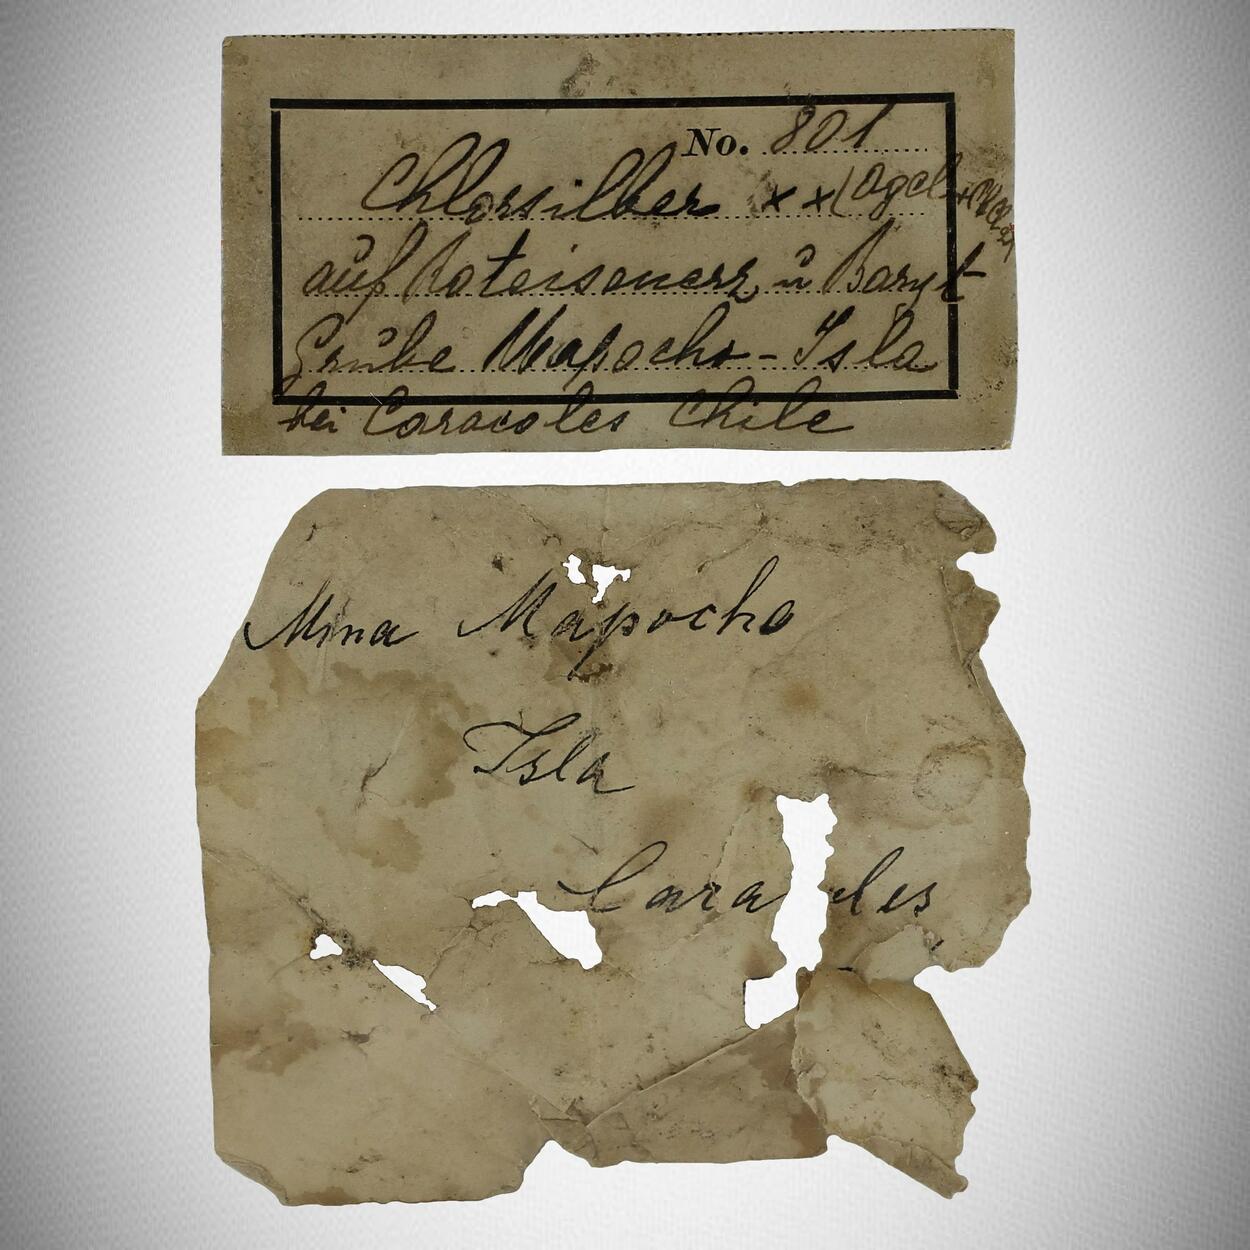 No. 801
Chlorsilber x x (AgCl
auf Roteisenerz ŭ Baryt
Grŭbe Mapocho - Isla
bei Caracoles Chile
Mina Mapocho
Isla
Cara oles